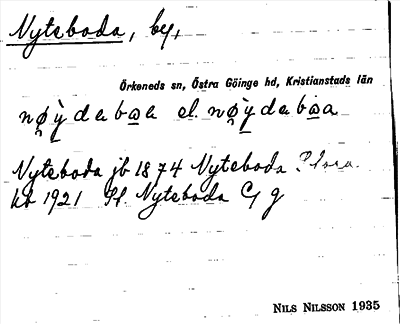 Nyteboda, by,
Örkeneds sn, Östra Göinge hd, Kristianstads län
nø̀ydabωa el. nø̀ydabωa
Nyteboda jb 1874 Nyteboda
kb 1921 St. Nyteboda G g
NILS NILSSON 1935